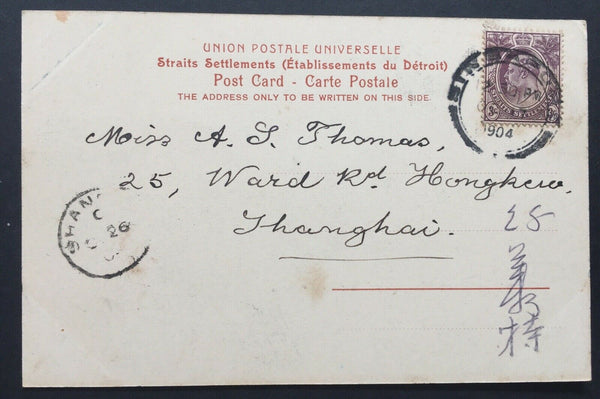 UNION POSTALE UNIVERSELLE
Straits Settlements (Établissements du Détroit)
Post Card - Carte Postale
THE ADDRESS ONLY TO BE WRITTEN ON THIS SIDE.
1904
Miss A. S. Thomas,
25, Ward Rd. Hongkew,
Shanghai.
SHANG
C
26
25